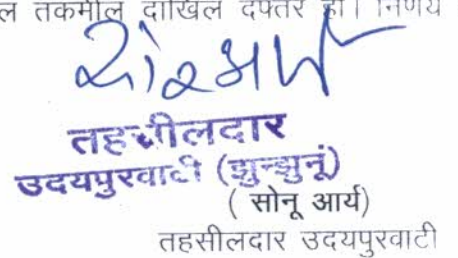 ल तकमील दाखिल दफ्तर हो। निर्णय
तहसीलदार
उदयपुरवाटी (झुन्झुनूं)
( सोनू आर्य)
तहसीलदार उदयपुरवाटी